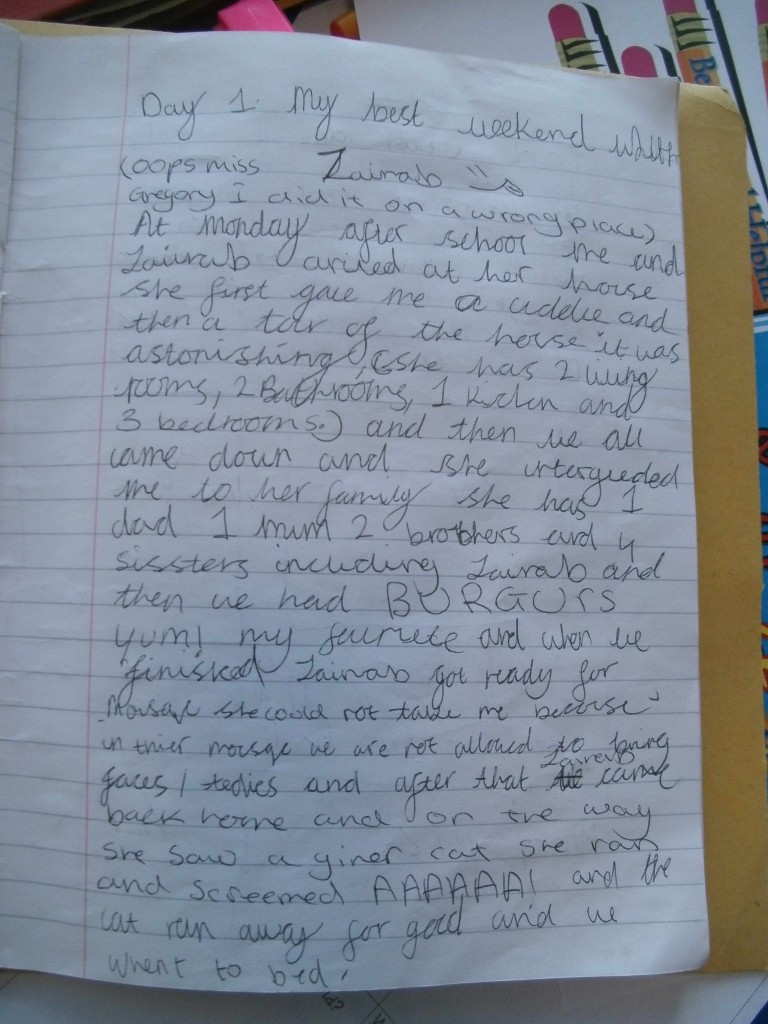 Day 1. My best weekend whith
(oops miss Zainab
Gregory I did it on a wrong place)
At monday after school me and
Zainab arived at her house
she first gave me a cuddle and
then a tour of the house it was
astonishing, (she has 2 living
rooms, 2 Bathrooms, 1 kichen and
3 bedrooms.) and then we all
came down and she intergueded
me to her family she has 1
dad 1 mum 2 brothers and 4
sissters including Zainab and
then we had BURGUrS
yum! my faurite and when we
finished Zainab got ready for
Mousqe she could not take me becouse
in thier mousqe we are not allowed to bring
faces / tedies and after that Zainab came
back home and on the way
she saw a giner cat she ran
and screemed AAAAAA! and the
cat ran away for good and we
whent to bed.